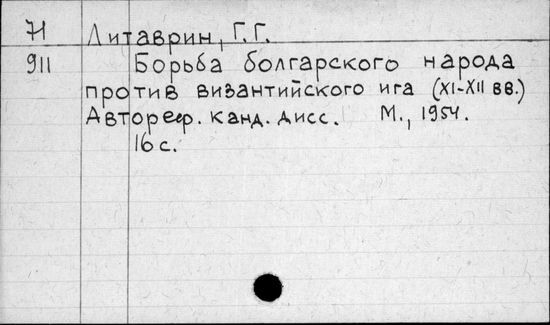 Л Литаврин, Г.Г.
911 Борьба болгарского народа
против византийского ига (XI-XII вв.)
Автореф. канд. дисс. М., 1954.
16 с.